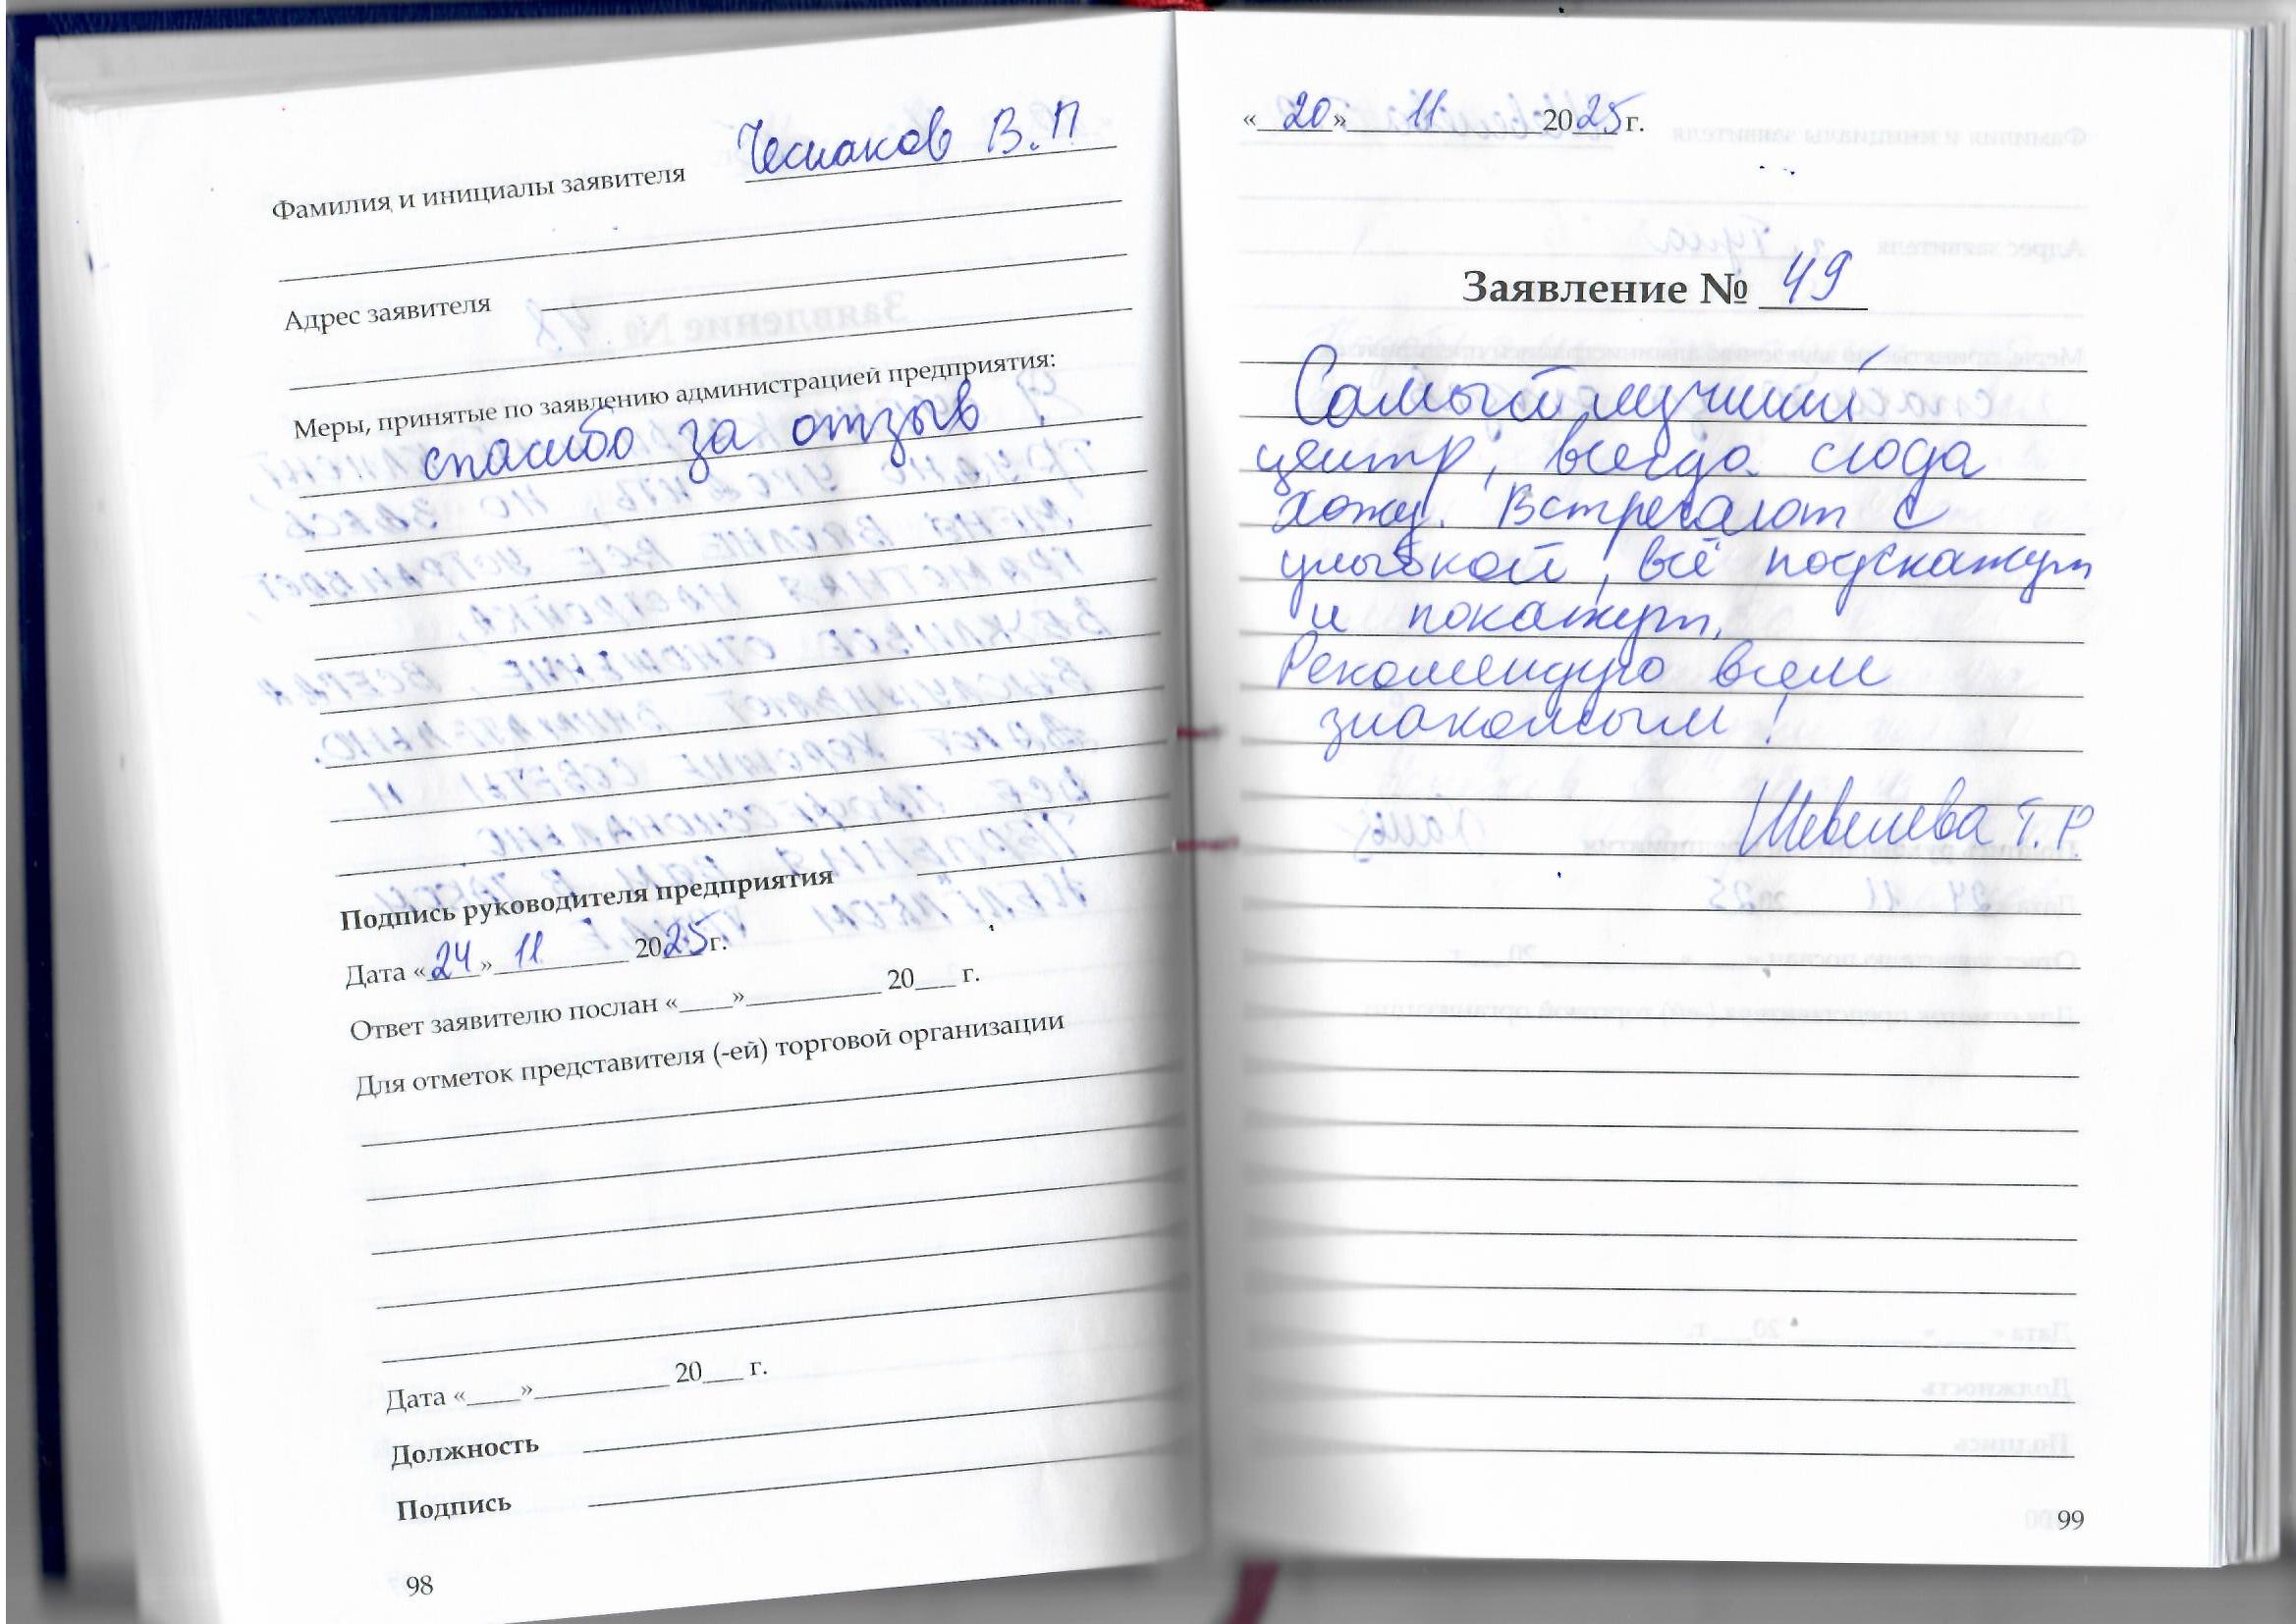 Фамилия и инициалы заявителя Чеснаков В.П
Адрес заявителя
Меры, принятые по заявлению администрацией предприятия:
спасибо за отзыв
Подпись руководителя предприятия
Дата «24» 11 2025г.
Ответ заявителю послан «____»__________ 20___ г.
Для отметок представителя (-ей) торговой организации
Дата «____»__________ 20___ г.
Должность
Подпись
98
«20» 11 2025г.
Заявление № 49
Самый лучший
центр, всегда сюда
хожу. Встречают с
улыбкой, всё подскажут
и покажут.
Рекомендую всем
знакомым!
Шевелева Т.Р.
99